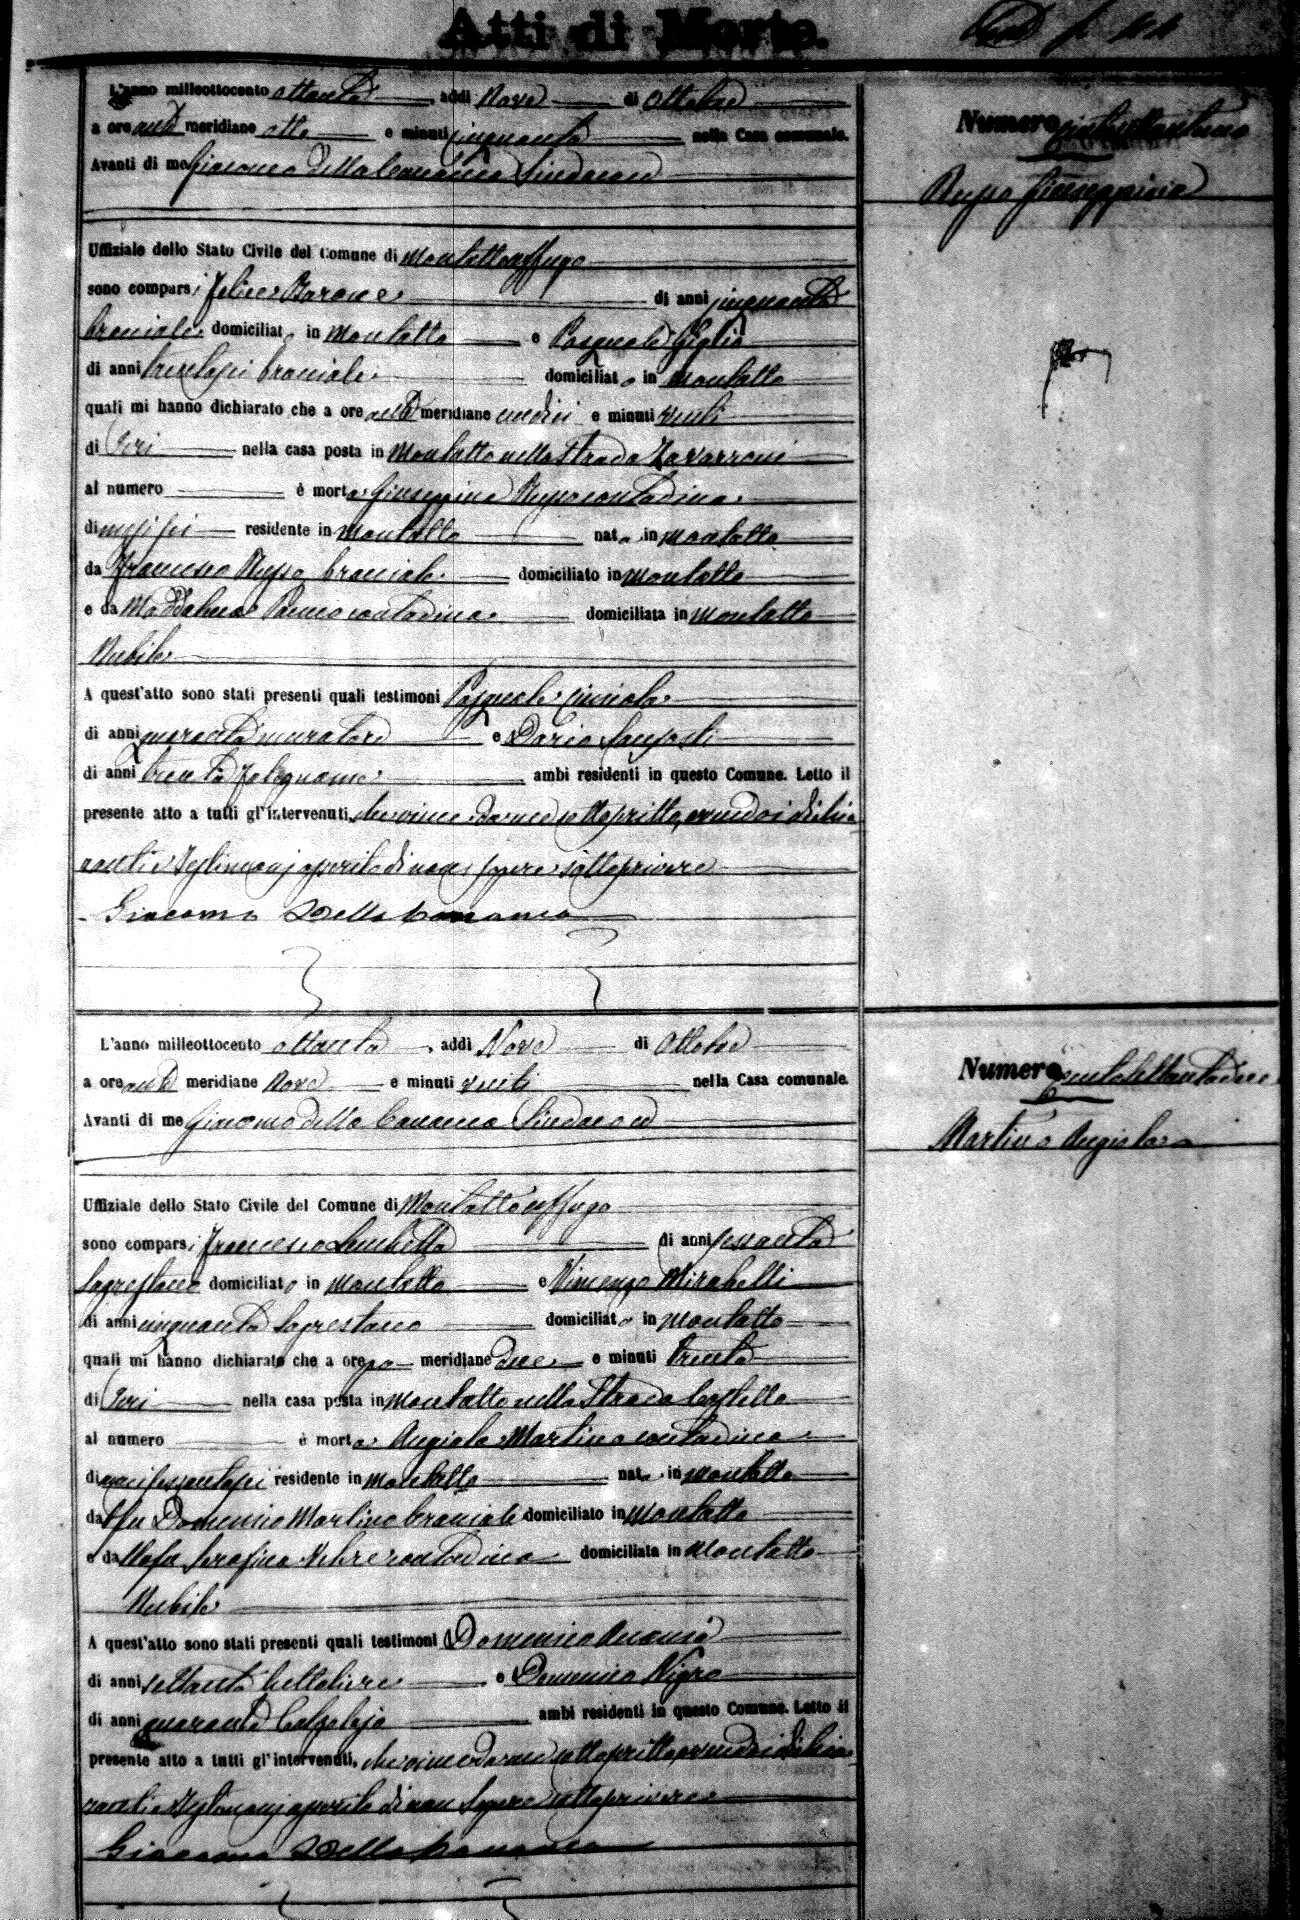 Atti di Morte.
L'anno milleottocento ottanta addì Nove di Ottobre
a ore anti meridiane otto e minuti cinquanta nella Casa comunale.
Avanti di me Giacomo Della Sindaco ed
Numero
Russo Giuseppina
Uffiziale dello Stato Civile del Comune di Montaltouffugo
sono comparsi Felice Barone di anni cinquanta
bracciale domiciliato in Montalto e Pasquale Giglio
di anni trentasei bracciale domiciliato in Montalto
quali mi hanno dichiarato che a ore anti meridiane undici e minuti venti
di Ieri nella casa posta in Montalto nella Strada Zavarroni
al numero è morta Giuseppina Russo contadina
di mesi sei residente in Montalto nata in Montalto
da Francesco Russo bracciale domiciliato in Montalto
e da Maddalena contadina domiciliata in Montalto
Nubile
A quest'atto sono stati presenti quali testimoni Pasquale
di anni quaranta muratore e Dario
di anni trenta falegname ambi residenti in questo Comune. Letto il
presente atto a tutti gl'intervenuti, che viene da me sottoscritto, avendo i dichia
ranti e Testimonj asserito di non sapere sottoscrivere
Giacomo Della
L'anno milleottocento ottanta addì Nove di Ottobre
a ore anti meridiane Nove e minuti venti nella Casa comunale.
Avanti di me Giacomo della Sindaco ed
Numero
Martino Angiola
Uffiziale dello Stato Civile del Comune di Montaltouffugo
sono comparsi Francesco di anni sessanta
Sagrestano domiciliato in Montalto e Vincenzo Mirabelli
di anni cinquanta Sagrestano domiciliato in Montalto
quali mi hanno dichiarato che a ore po meridiane due e minuti trenta
di Ieri nella casa posta in Montalto nella Strada Castello
al numero è morta Angiola Martino contadina
di anni sessantasei residente in Montalto nata in Montalto
da fu Domenico Martino bracciale domiciliato in Montalto
e da fu Serafina contadina domiciliata in Montalto
Nubile
A quest'atto sono stati presenti quali testimoni Domenico
di anni settanta bettoliere e Domenico Nigro
di anni quaranta Calzolajo ambi residenti in questo Comune. Letto il
presente atto a tutti gl'intervenuti, che viene da me sottoscritto, avendo i dichia
ranti e Testimonj asserito di non sapere sottoscrivere
Giacomo Della